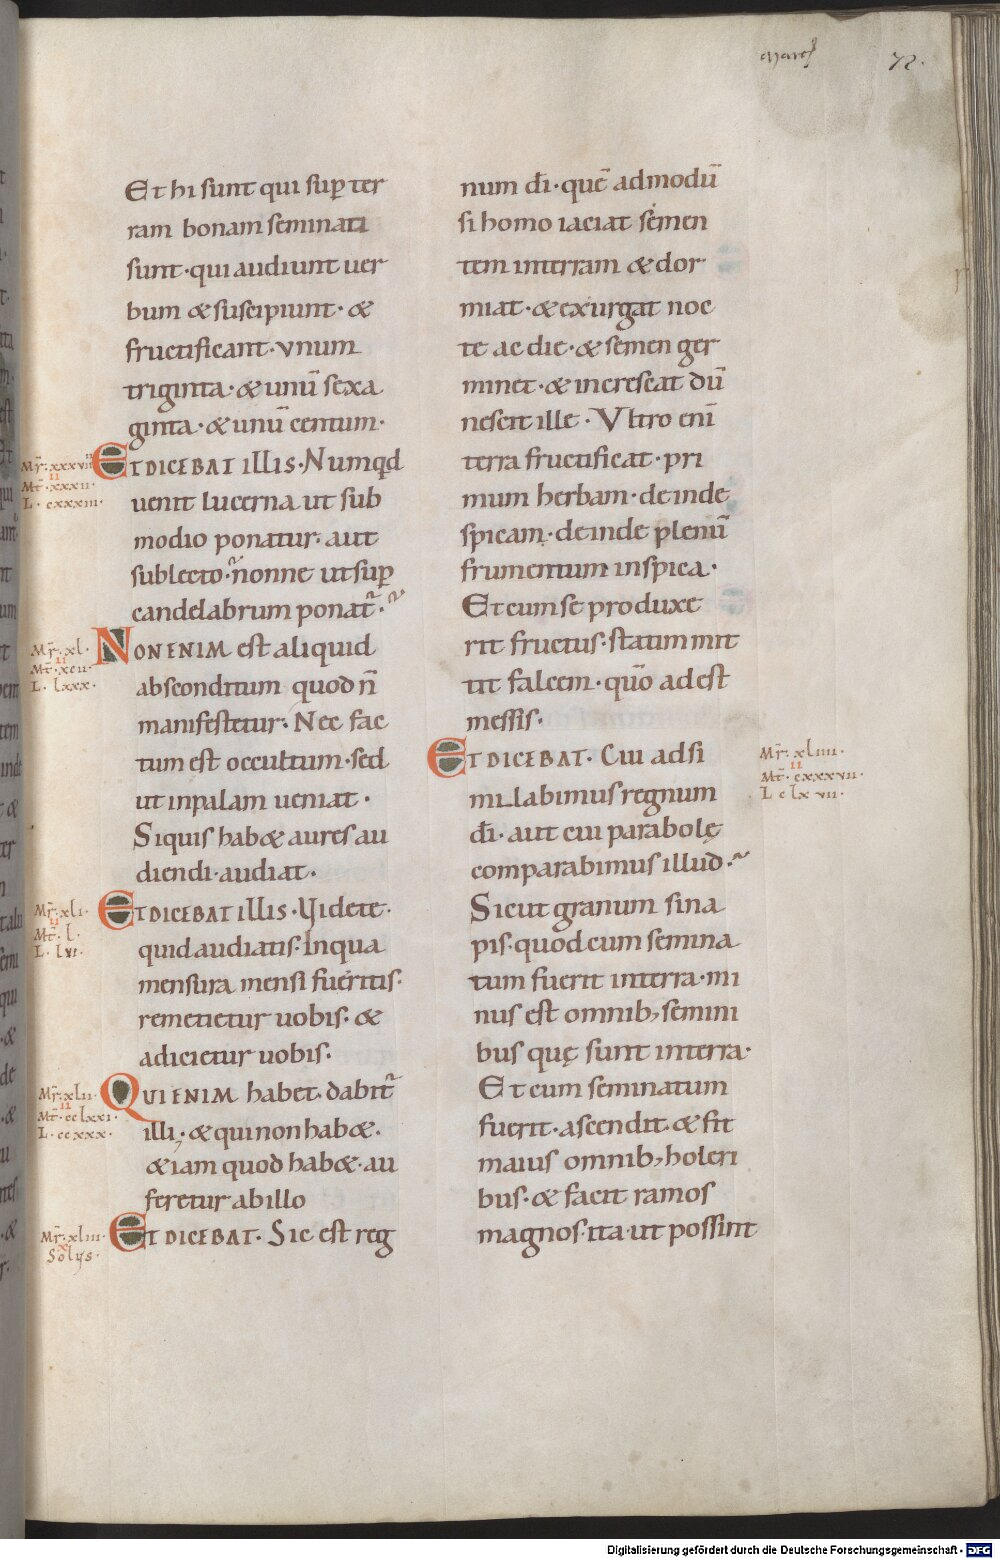 marcꝰ 72.
Et hi sunt qui suꝑ ter
ram bonam seminati
sunt· qui audiunt uer
bum & suscipiunt· &
fructificant· vnum
triginta· & unū sexa
ginta· & unū centum·
Mr̄· xxxvii
Mt̄· xxxii·
II
L· cxxxiii·
ET DICEBAT illis· Numqd
uenit lucerna ut sub
modio ponatur· aut
sub lecto· ñonne ut suꝑ
candelabrum ponat᷑·
Mr̄· xl·
II
Mt̄· xcii·
L· lxxx·
NON ENIM est aliquid
absconditum quod n̄
manifestetur· Nec fac
tum est occultum· sed
ut inpalam ueniat·
Siquis hab& aures au
diendi· audiat·
Mr̄· xli·
II
Mt̄· l·
L· lvi·
ET DICEBAT illis· Videte·
quid audiatis· Inqua
mensura mensi fueritis·
remetietur uobis· &
adicietur uobis·
Mr̄· xlii·
II
Mt̄· cclxxi·
L· ccxxx·
QUI ENIM habet· dabit᷑
illi· & qui non hab&·
& iam quod hab&· au
feretur ab illo
Mr̄· xliii·
X
Solus·
ET DICEBAT· Sic est reg
num dī· quē admodū
si homo iaciat semen
tem in terram & dor
miat· & exurgat noc
te ac die· & semen ger
minet· & increscat dū
nescit ille· Vltro enī
terra fructificat· pri
mum herbam· deinde
spicam· deinde plenū
frumentum in spica·
Et cum se produxe
rit fructus· statim mit
tit falcem· qūo adest
messis·
ET DICEBAT· Cui adsi
milabimus regnum
dī· aut cui parabolę
comparabimus illud·
Mr̄· xliiii·
II
Mt̄· cxxxvii·
L clxvii·
Sicut granum sina
pis· quod cum semina
tum fuerit in terra· mi
nus est omnib; semini
bus quę sunt in terra·
Et cum seminatum
fuerit· ascendit· & fit
maius omnib; holeri
bus· & facit ramos
magnos· ita· ut possint
Digitalisierung gefördert durch die Deutsche Forschungsgemeinschaft · DFG